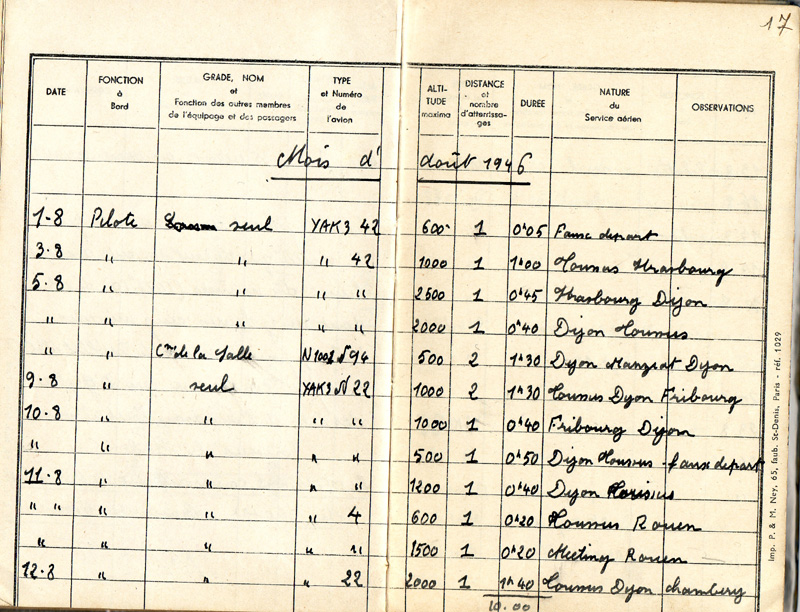 17
DATE FONCTION à Bord GRADE, NOM et Fonction des autres membres de l'équipage et des passagers TYPE et Numéro de l'avion ALTITUDE maxima DISTANCE et nombre d'atterrissages DURÉE NATURE du Service aérien OBSERVATIONS
Mois d' août 1946
1-8 Pilote seul YAK3 42 600 1 0h05 Faux depart
3.8 " " " 42 1000 1 1h00 Toussus Strasbourg
5.8 " " " " 2500 1 0h45 Strasbourg Dijon
" " " " " 2000 1 0h40 Dijon Toussus
" " Cne de la Salle N1002 N°94 500 2 1h30 Dijon Dijon
9.8 " seul YAK3 N° 22 1000 2 1h30 Toussus Dijon Fribourg
10.8 " " " " 1000 1 0h40 Fribourg Dijon
" " " " " 500 1 0h50 Dijon Toussus - faux depart
11.8 " " " " 1200 1 0h40 Dijon Toussus
" " " " " 4 600 1 0h20 Toussus Rouen
" " " " " 1500 1 0h20 Meeting Rouen
12.8 " " " 22 2000 1 1h40 Toussus Dijon chambery
10.00
Imp. P. & M. Ney, 65, faub. St-Denis, Paris - réf. 1029